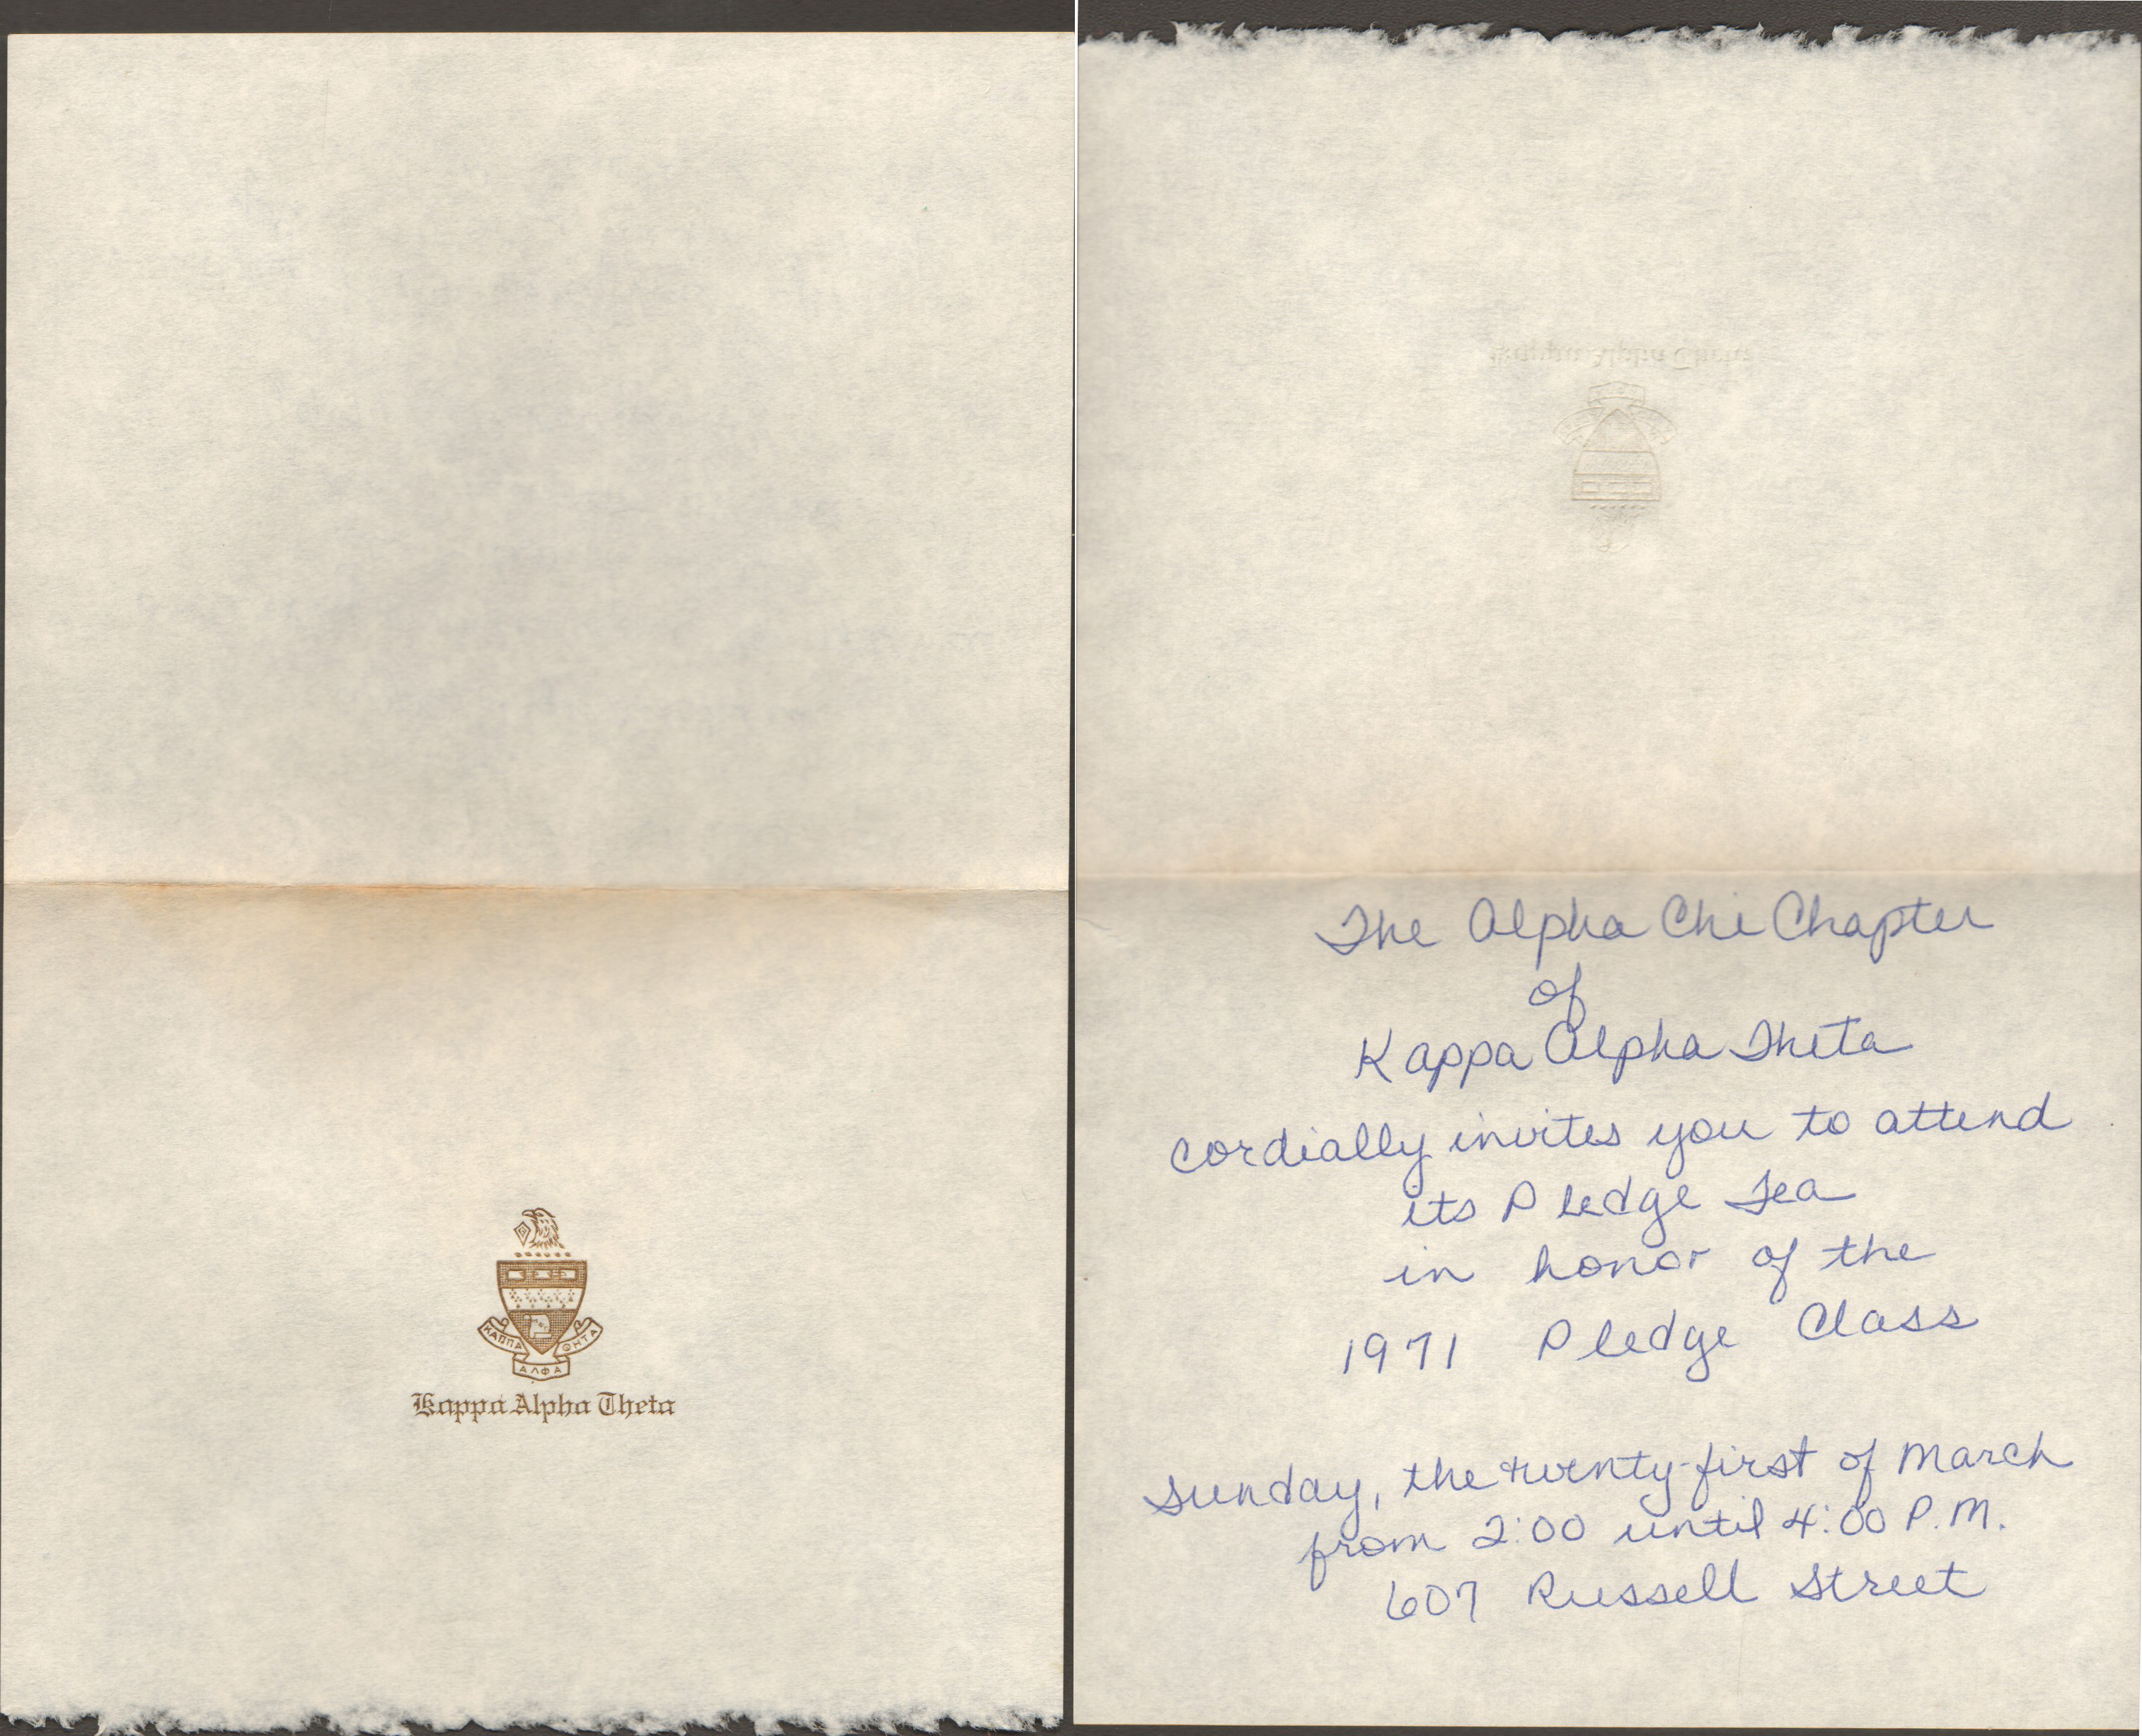 ΚΑΠΠΑ
ΑΛΦΑ
ΘΗΤΑ
Kappa Alpha Theta
The Alpha Chi Chapter
of
Kappa Alpha Theta
cordially invites you to attend
its Pledge Tea
in honor of the
1971 Pledge Class
Sunday, the twenty-first of March
from 2:00 until 4:00 P.M.
607 Russell Street